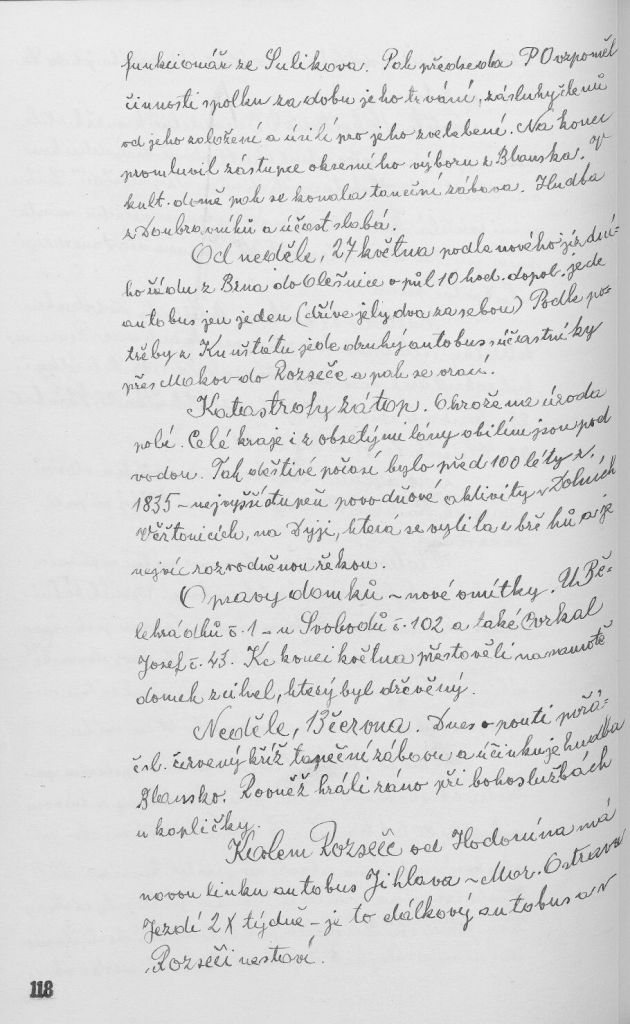 funkcionář ze Sulíkova. Pak předseda PO vzpoměl
činnosti spolku za dobu jeho trvání, zásluhy členů
od jeho založení a úsilí pro jeho zvelebené. Na konec
promluvil zástupce okresního výboru z Blanska. V
kult. domě pak se konala taneční zábava. Hudba
z Doubravníků a účast slabá.
Od neděle, 27 května podle nového jízdní-
ho řádu z Brna do Olešnice o půl 10 hod. dopol. jede
autobus jen jeden (dříve jely dva za sebou) Podle po-
třeby z Kunštátu jede druhý autobus s účastníky
přes Makov do Rozseče a pak se vrací.
Katastrofy zátop. Ohrožena úroda
polí. Celé kraje i z obsetými lány obilím jsou pod
vodou. Tak deštivé počasí bylo před 100 léty r.
1835 - nejvyšší stupeň povodňové aktivity v Dolních
Věstonicích, na Dyji, která se vylila z břehů a je
nejvíc rozvodněnou řekou.
Opravy domků - nové omítky. U Bě-
lehrádků č. 1 - u Svobodů č. 102 a také Cvrkal
Josef č. 43. Ke konci května přestověli na samotě
domek z cihel, který byl dřěvěný.
Neděle, 13 června. Dnes o pouti pořá-
čsl. červený kříž taneční zábavu a účinkuje hudba
Blansko. Rovněž hráli ráno při bohoslužbách
u kapličky.
Kolem Rozseče od Hodonína má
novou linku autobus Jihlava - Mor. Ostrava
Jezdí 2 X týdně - je to dálkový autobus a v
Rozseči nestaví.
118